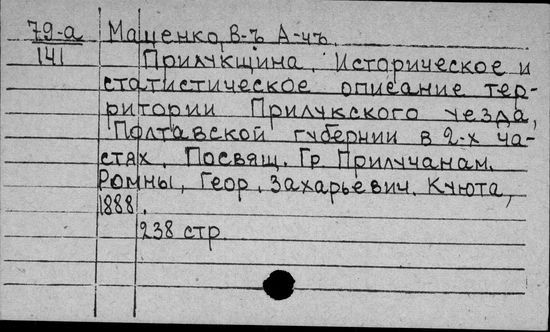 79-а Маценко, В-ъ А-чъ.
141 Прилукщина. Историческое и
статистическое описание тер-
ритории Прилукского уезда,
Полтавской губернии в 2-х ча-
стях. Посвящ. Гр. Прилучанам.
Ромны, Геор. Захарьевич.
1888.
238 стр.